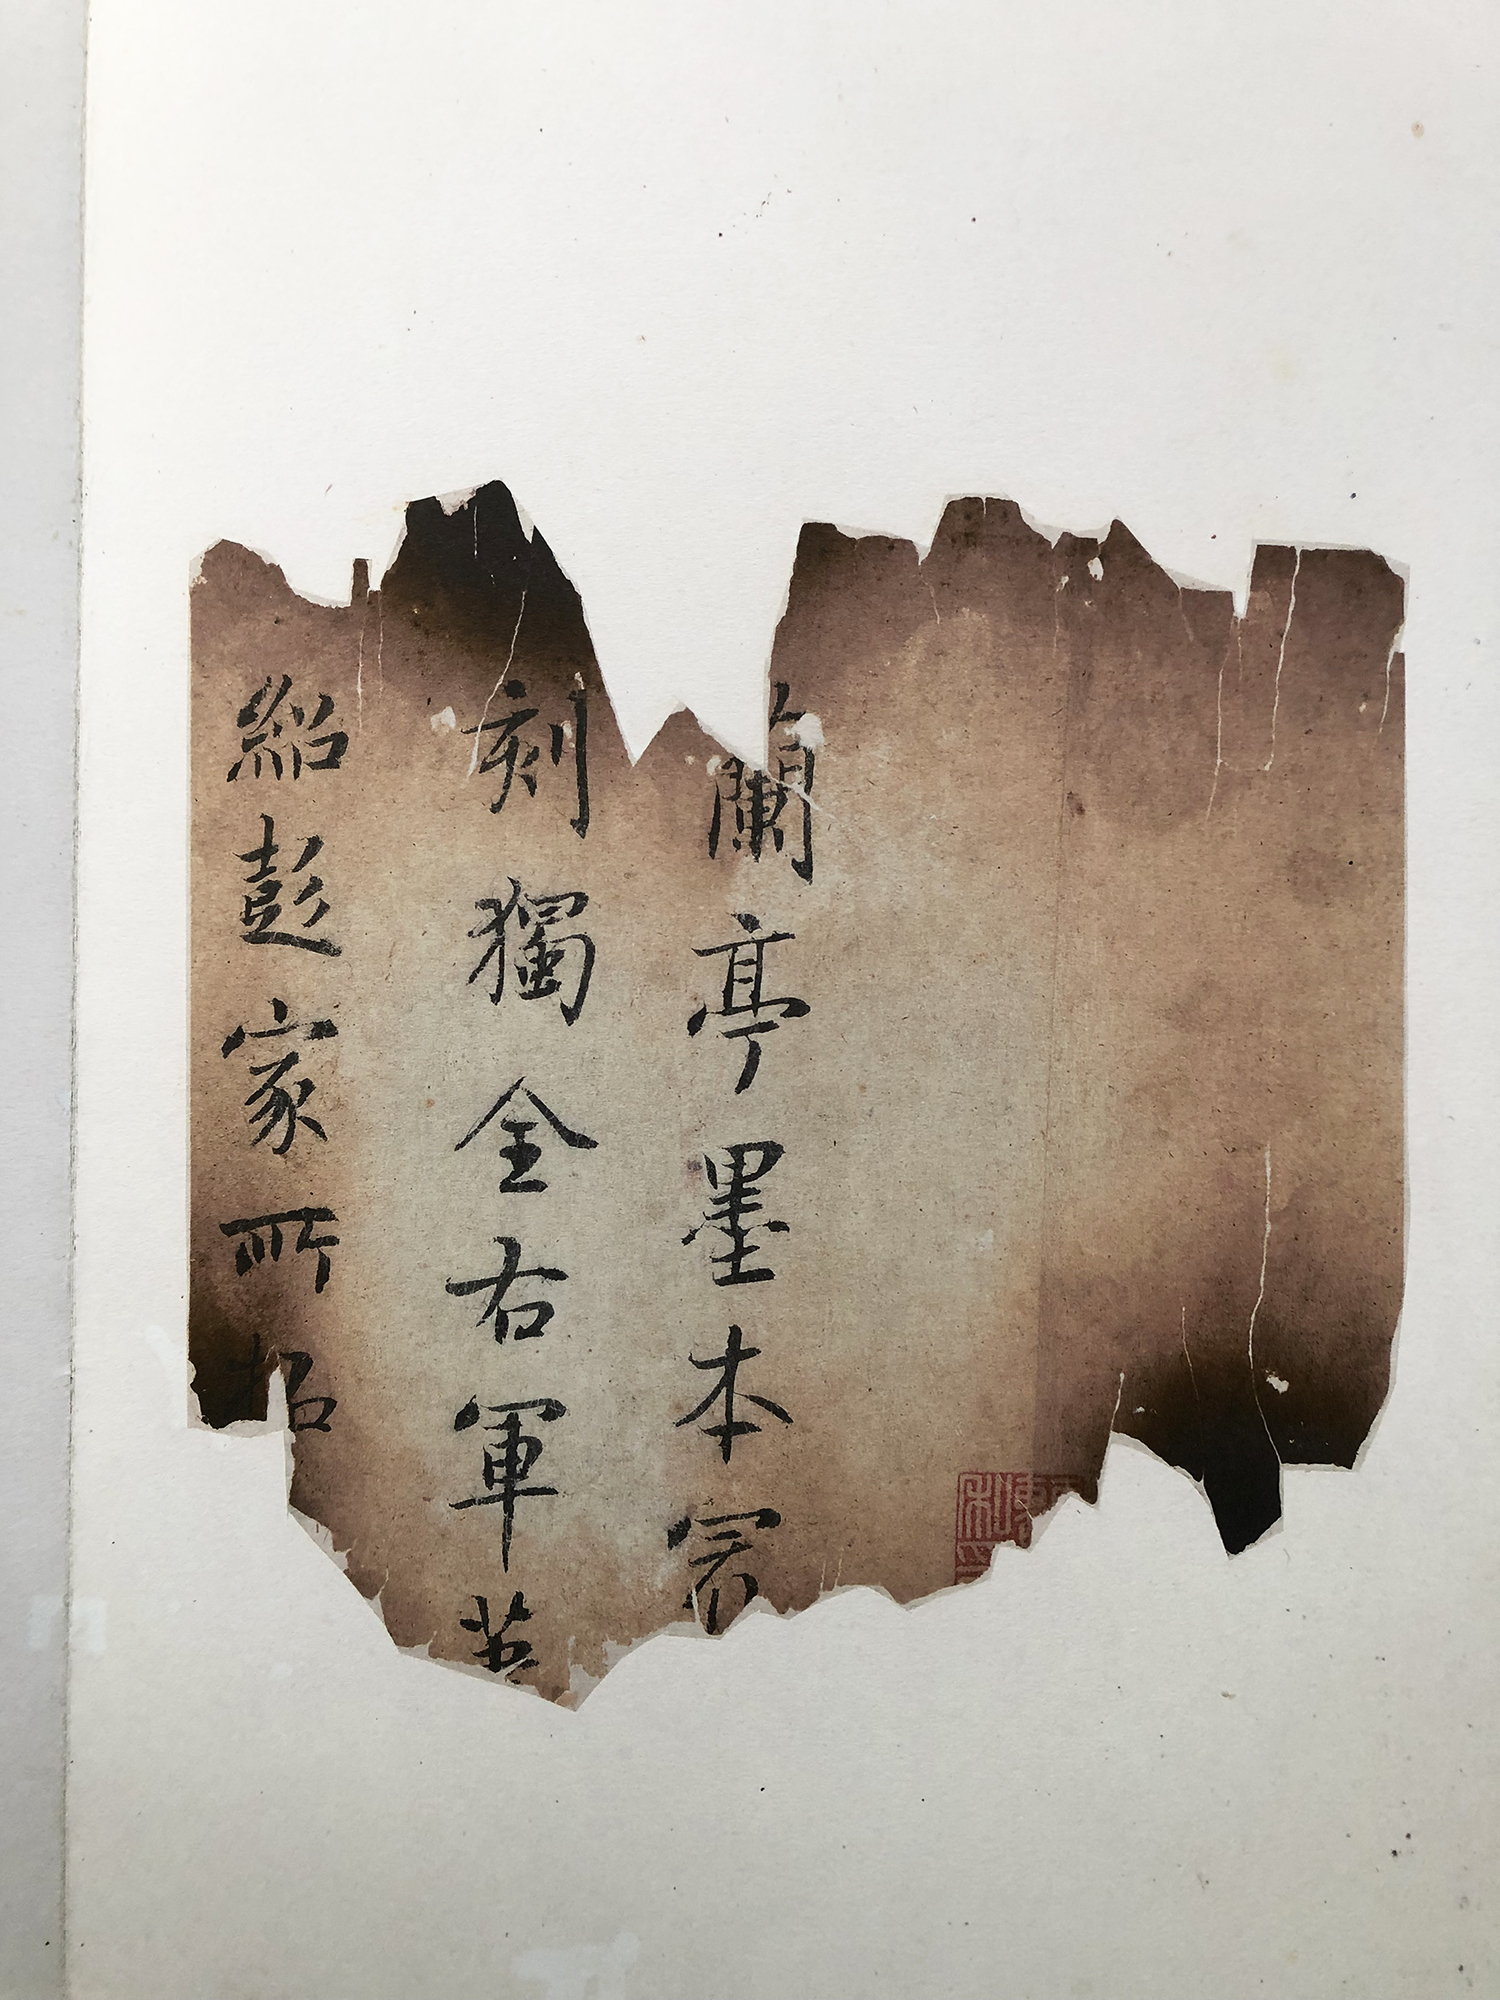 蘭亭墨本
刻獨全右軍
紹彭家所拓